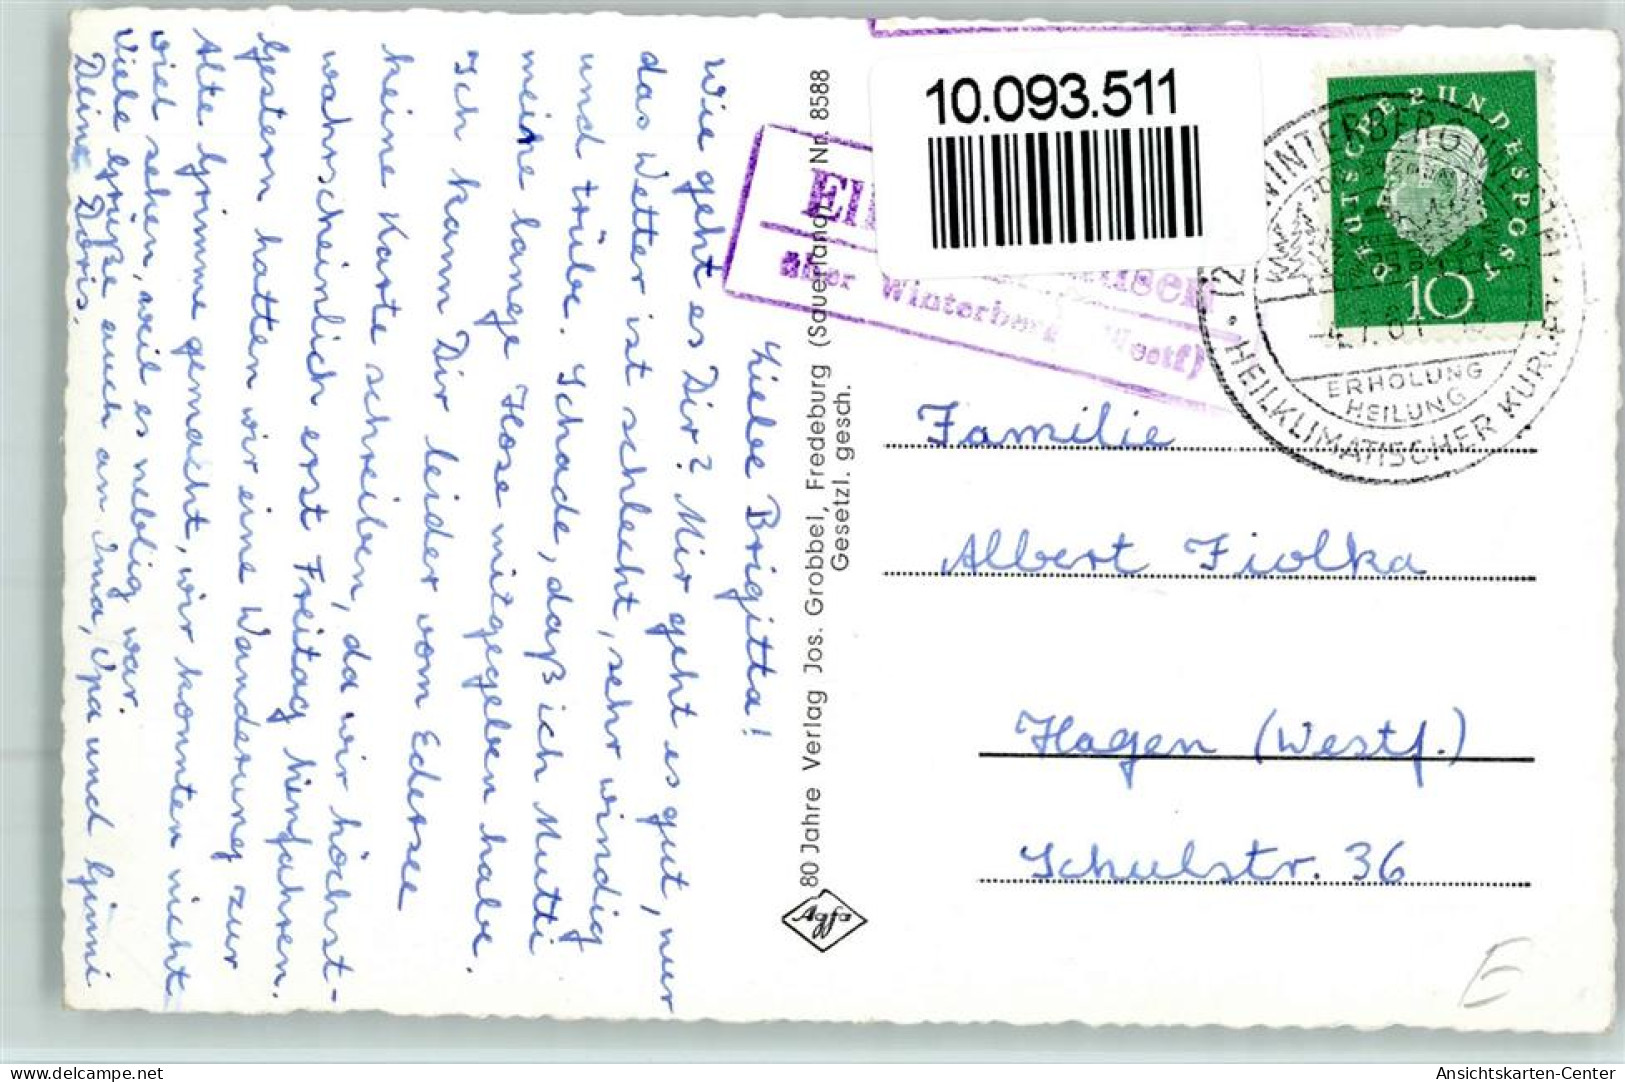 Liebe Brigitta!
Wie geht es Dir? Mir geht es gut, nur
das Wetter ist schlecht, sehr windig
und trübe. Schade, daß ich Mutti
meine lange Hose mitgegeben habe.
Ich kann Dir leider vom Edersee
keine Karte schreiben, da wir höchst-
wahrscheinlich erst Freitag hinfahren.
Gestern hatten wir eine Wanderung zur
Alte Grimme gemacht, wir konnten nicht
viel sehen, weil es neblig war.
Viele Grüße auch an Oma, Opa und Gimmi
Deine Doris.
80 Jahre Verlag Jos. Grobbel, Fredeburg (Sauerland) Nr. 8588
Gesetzl. gesch.
Agfa
10.093.511
über Winterberg (Westf)
DEUTSCHE BUNDESPOST
10
WINTERBERG
ERHOLUNG
HEILUNG
HEILKLIMATISCHER KURORT
Familie
Albert Fiolka
Hagen (Westf.)
Schulstr. 36
E
www.delcampe.net
Ansichtskarten-Center